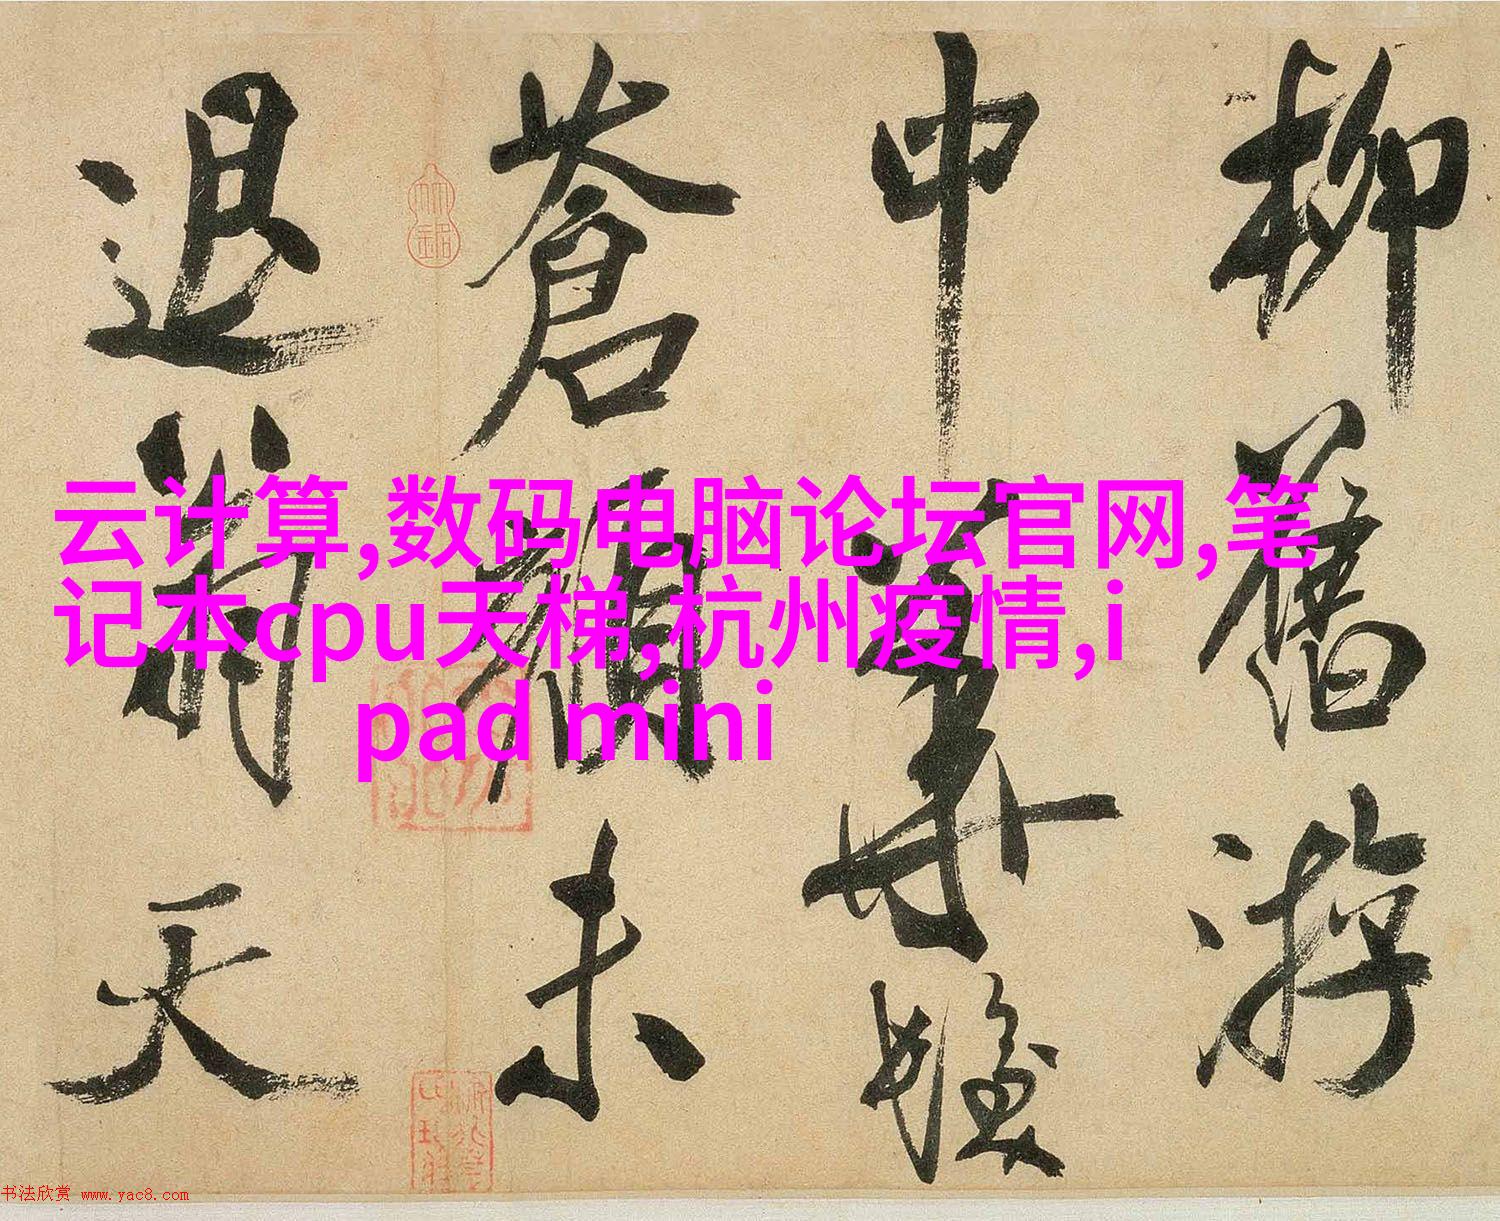 柳舊游
中華髮
蒼顏未
退翁天
云计算,数码电脑论坛官网,笔
记本cpu天梯,杭州疫情,i
pad mini
书法欣赏 www.yac8.com